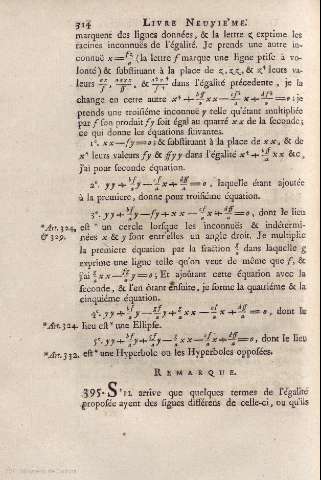 314 LIVRE NEUVIÈME.
marquent des lignes données, & la lettre z exprime les
racines inconnuës de l'égalité. Je prends une autre in-
connuë x = (la lettre f marque une ligne prise à vo-
lonté) & substituant à la place de z, zz, & z⁴ leurs va-
leurs & dans l'égalité précédente, je la
change en cette autre x⁴ + = 0 : je
prends une troisième inconnuë y telle qu'étant multipliée
par f son produit fy soit égal au quarré xx de la seconde;
ce qui donne les équations suivantes.
1°. xx — fy = 0 ; & substituant à la place de xx, & de
x⁴ leurs valeurs fy & ffyy dans l'égalité x⁴ + xx &c,
j'ai pour seconde équation.
2°. yy + = 0, laquelle étant ajoutée
à la premiere, donne pour troisième équation.
3°. yy + = 0, dont le lieu
*Art. 324. est * un cercle lorsque les inconnuës & indétermi-
& 329. nées x & y font entr'elles un angle droit. Je multiplie
la premiere équation par la fraction dans laquelle g
exprime une ligne telle qu'on veut de même que f, &
j'ai = 0 ; Et ajoutant cette équation avec la
seconde, & l'en ôtant ensuite, je forme la quatrième & la
cinquième équation.
4°. yy + = 0, dont le
*Art. 324. lieu est * une Ellipse.
5°. yy + = 0, dont le lieu
*Art. 332. est * une Hyperbole ou les Hyperboles opposées.
REMARQUE.
395. S'IL arrive que quelques termes de l'égalité
proposée ayent des signes différens de celle-ci, ou qu'ils